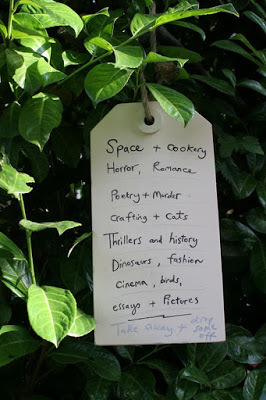 Space + cookery
Horror, Romance
Poetry + Murder
Crafting + Cats
Thrillers and history
Dinosaurs, fashion
Cinema, birds,
essays + Pictures
Take away + drop
some
off